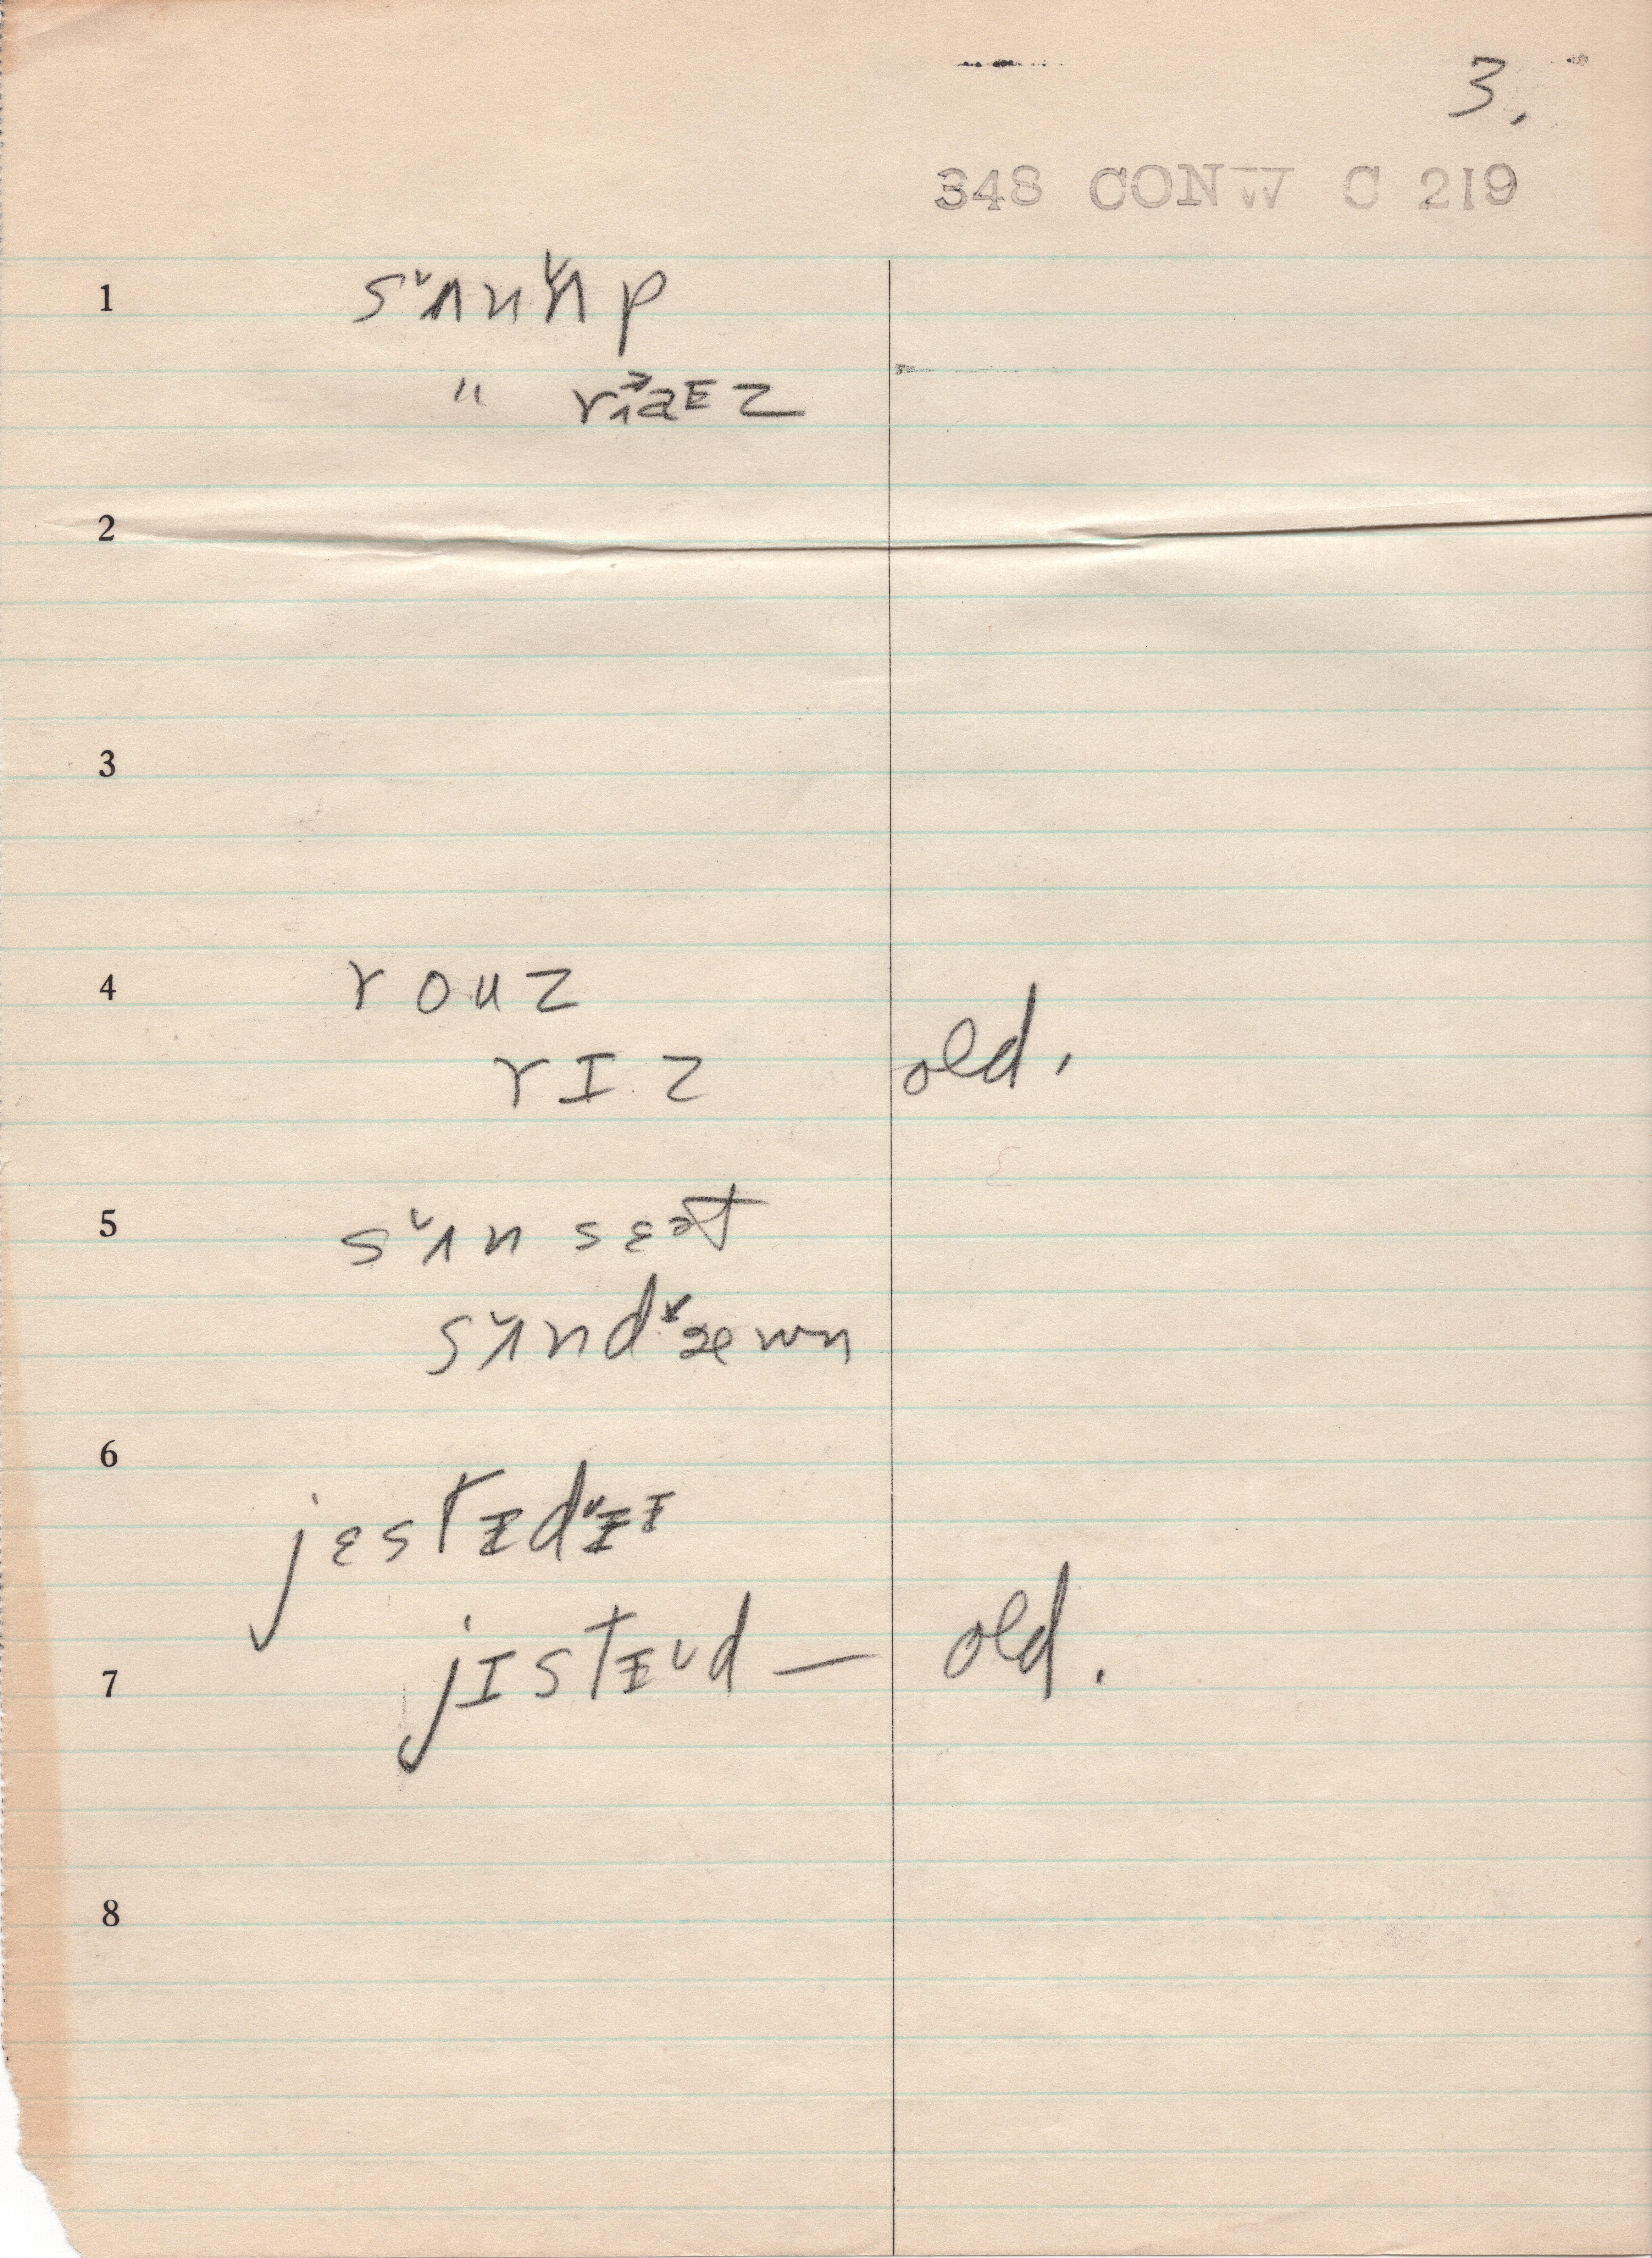 3.
348 CONW C 219
1 sʌ̌nʌ̌p
" rʌ˃aɛz
2
3
4 rouz
rɪz old.
5 sʌ̌n sɛət
sʌ̌nd˅æwn
6
jɛstɨd˅ɨɪ
7 jɪstɨ˅d — old.
8